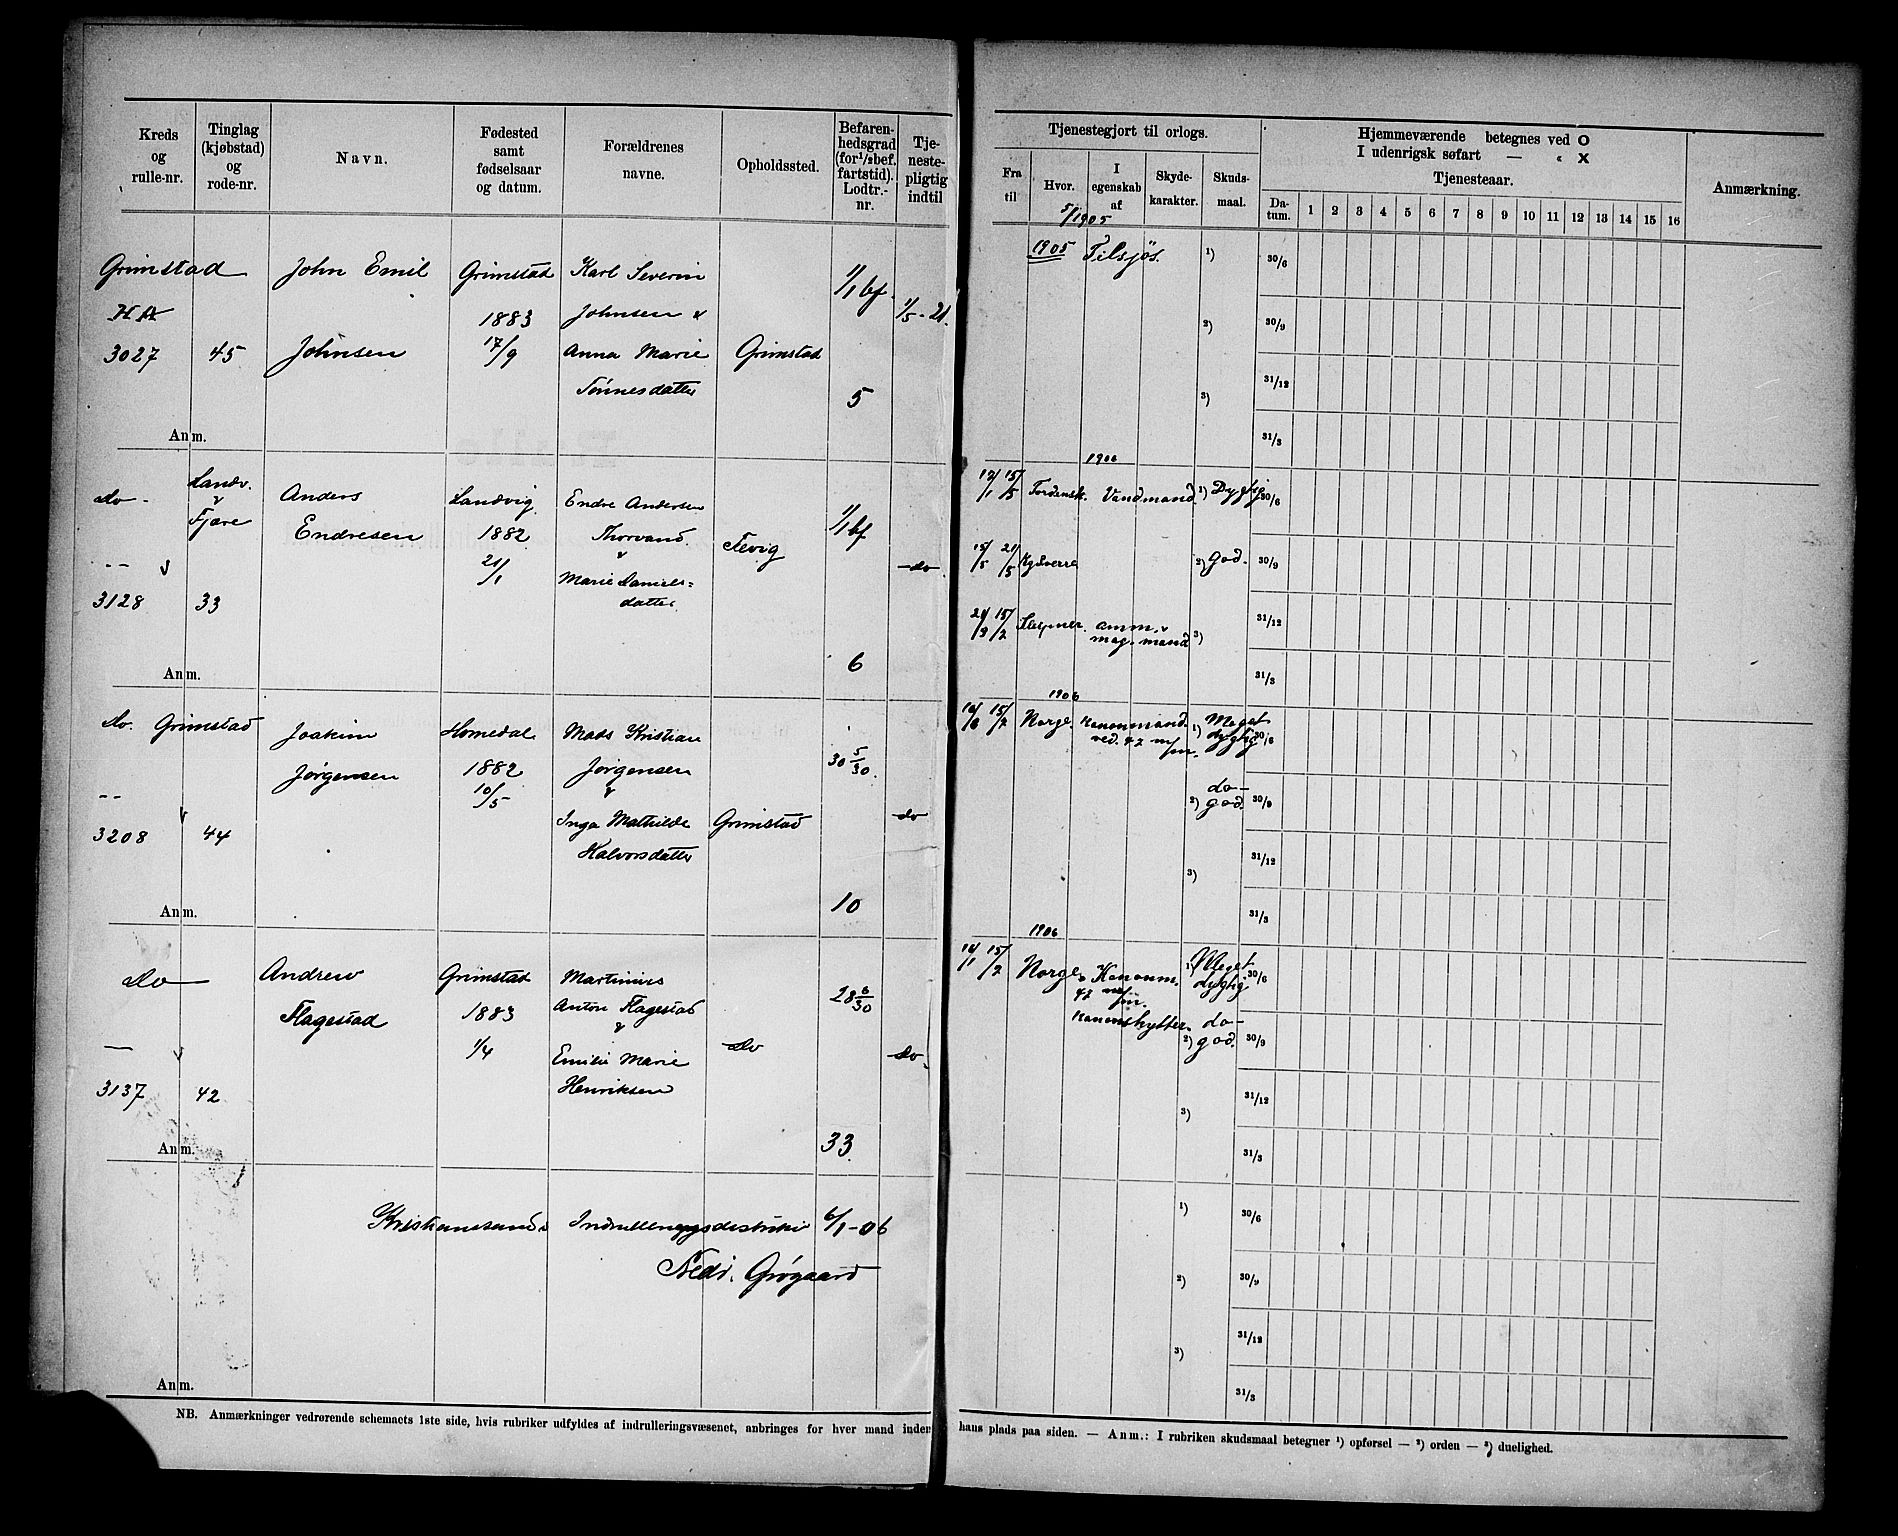 Kreds og rulle-nr.
Tinglag (kjøbstad) og rode-nr.
Navn.
Fødested samt fødselsaar og datum.
Forældrenes navne.
Opholdssted.
Befaren-hedsgrad (for 1/2 bef. fartstid). Lodtr.-nr.
Tje-neste-pligtig indtil
Tjenestegjort til orlogs.
Fra til
Hvor.
I egenskab af
Skyde-karakter.
Skuds-maal.
Hjemmeværende betegnes ved O
I udenrigsk søfart — " X
Tjenesteaar.
Da-tum. 1 2 3 4 5 6 7 8 9 10 11 12 13 14 15 16
Anmærkning.
5/1905
Grimstad John Emil Grimstad Karl Severin 1/1 bf. 1905 Tilsjøs. 1) 30/6
HA 1883 Johnsen & 1/5-21. 2) 30/9
3027 45 Johnsen 17/9 Anna Marie Grimstad
Tønnesdatter 5 3) 31/12
Anm. 31/3
1906
do - Landv. & Fjære Anders Landvig Endre Andersen 1/1 bf 12/1 15/5 Tordensk. Vandmand. 1) Dygtig 30/6
Endresen 1882 Thorvand. &
21/1 Marie Daniels= Fevig do 15/5 21/5 Kg Sverre 2) god. 30/9
3128 33 datter. 21/3 15/2 amm. & mag. mand 3) 31/12
Anm. 6 31/3
1906
do. Grimstad Joakim Homedal Mads Kristian 15/2 Norge. Kanonmand. ved. 47 m/m. 1) Meget dygtig 30/6
Jørgensen 1882 Jørgensen 30 5/30.
10/5 & 2) do- god. 30/9
3208 44 Inga Mathilde Grimstad do
Halvorsdatter 3) 31/12
Anm. 10 31/3
1906
do Andrew Grimstad Martinius 28 6/30 16/1 15/2 Norge. Kanonm. 47 m/m. 1) Meget dygtig 30/6
Flagestad 1883 Anton Flagestad & Kanonskytter. 2) do- god. 30/9
1/4 Emilie Marie do do.
3137 42 Henriksen 3) 31/12
Anm. 33. 31/3
Kristianssands Indrulleringsdistrikt 6/1-06 1) 30/6
Fredr. Grøgaard 2) 30/9
3) 31/12
Anm. 31/3
NB. Anmærkninger vedrørende schemaets 1ste side, hvis rubriker udfyldes af indrulleringsvæsenet, anbringes for hver mand inden hans plads paa siden. — Anm.: I rubriken skudsmaal betegner 1) opførsel — 2) orden — 3) duelighed.